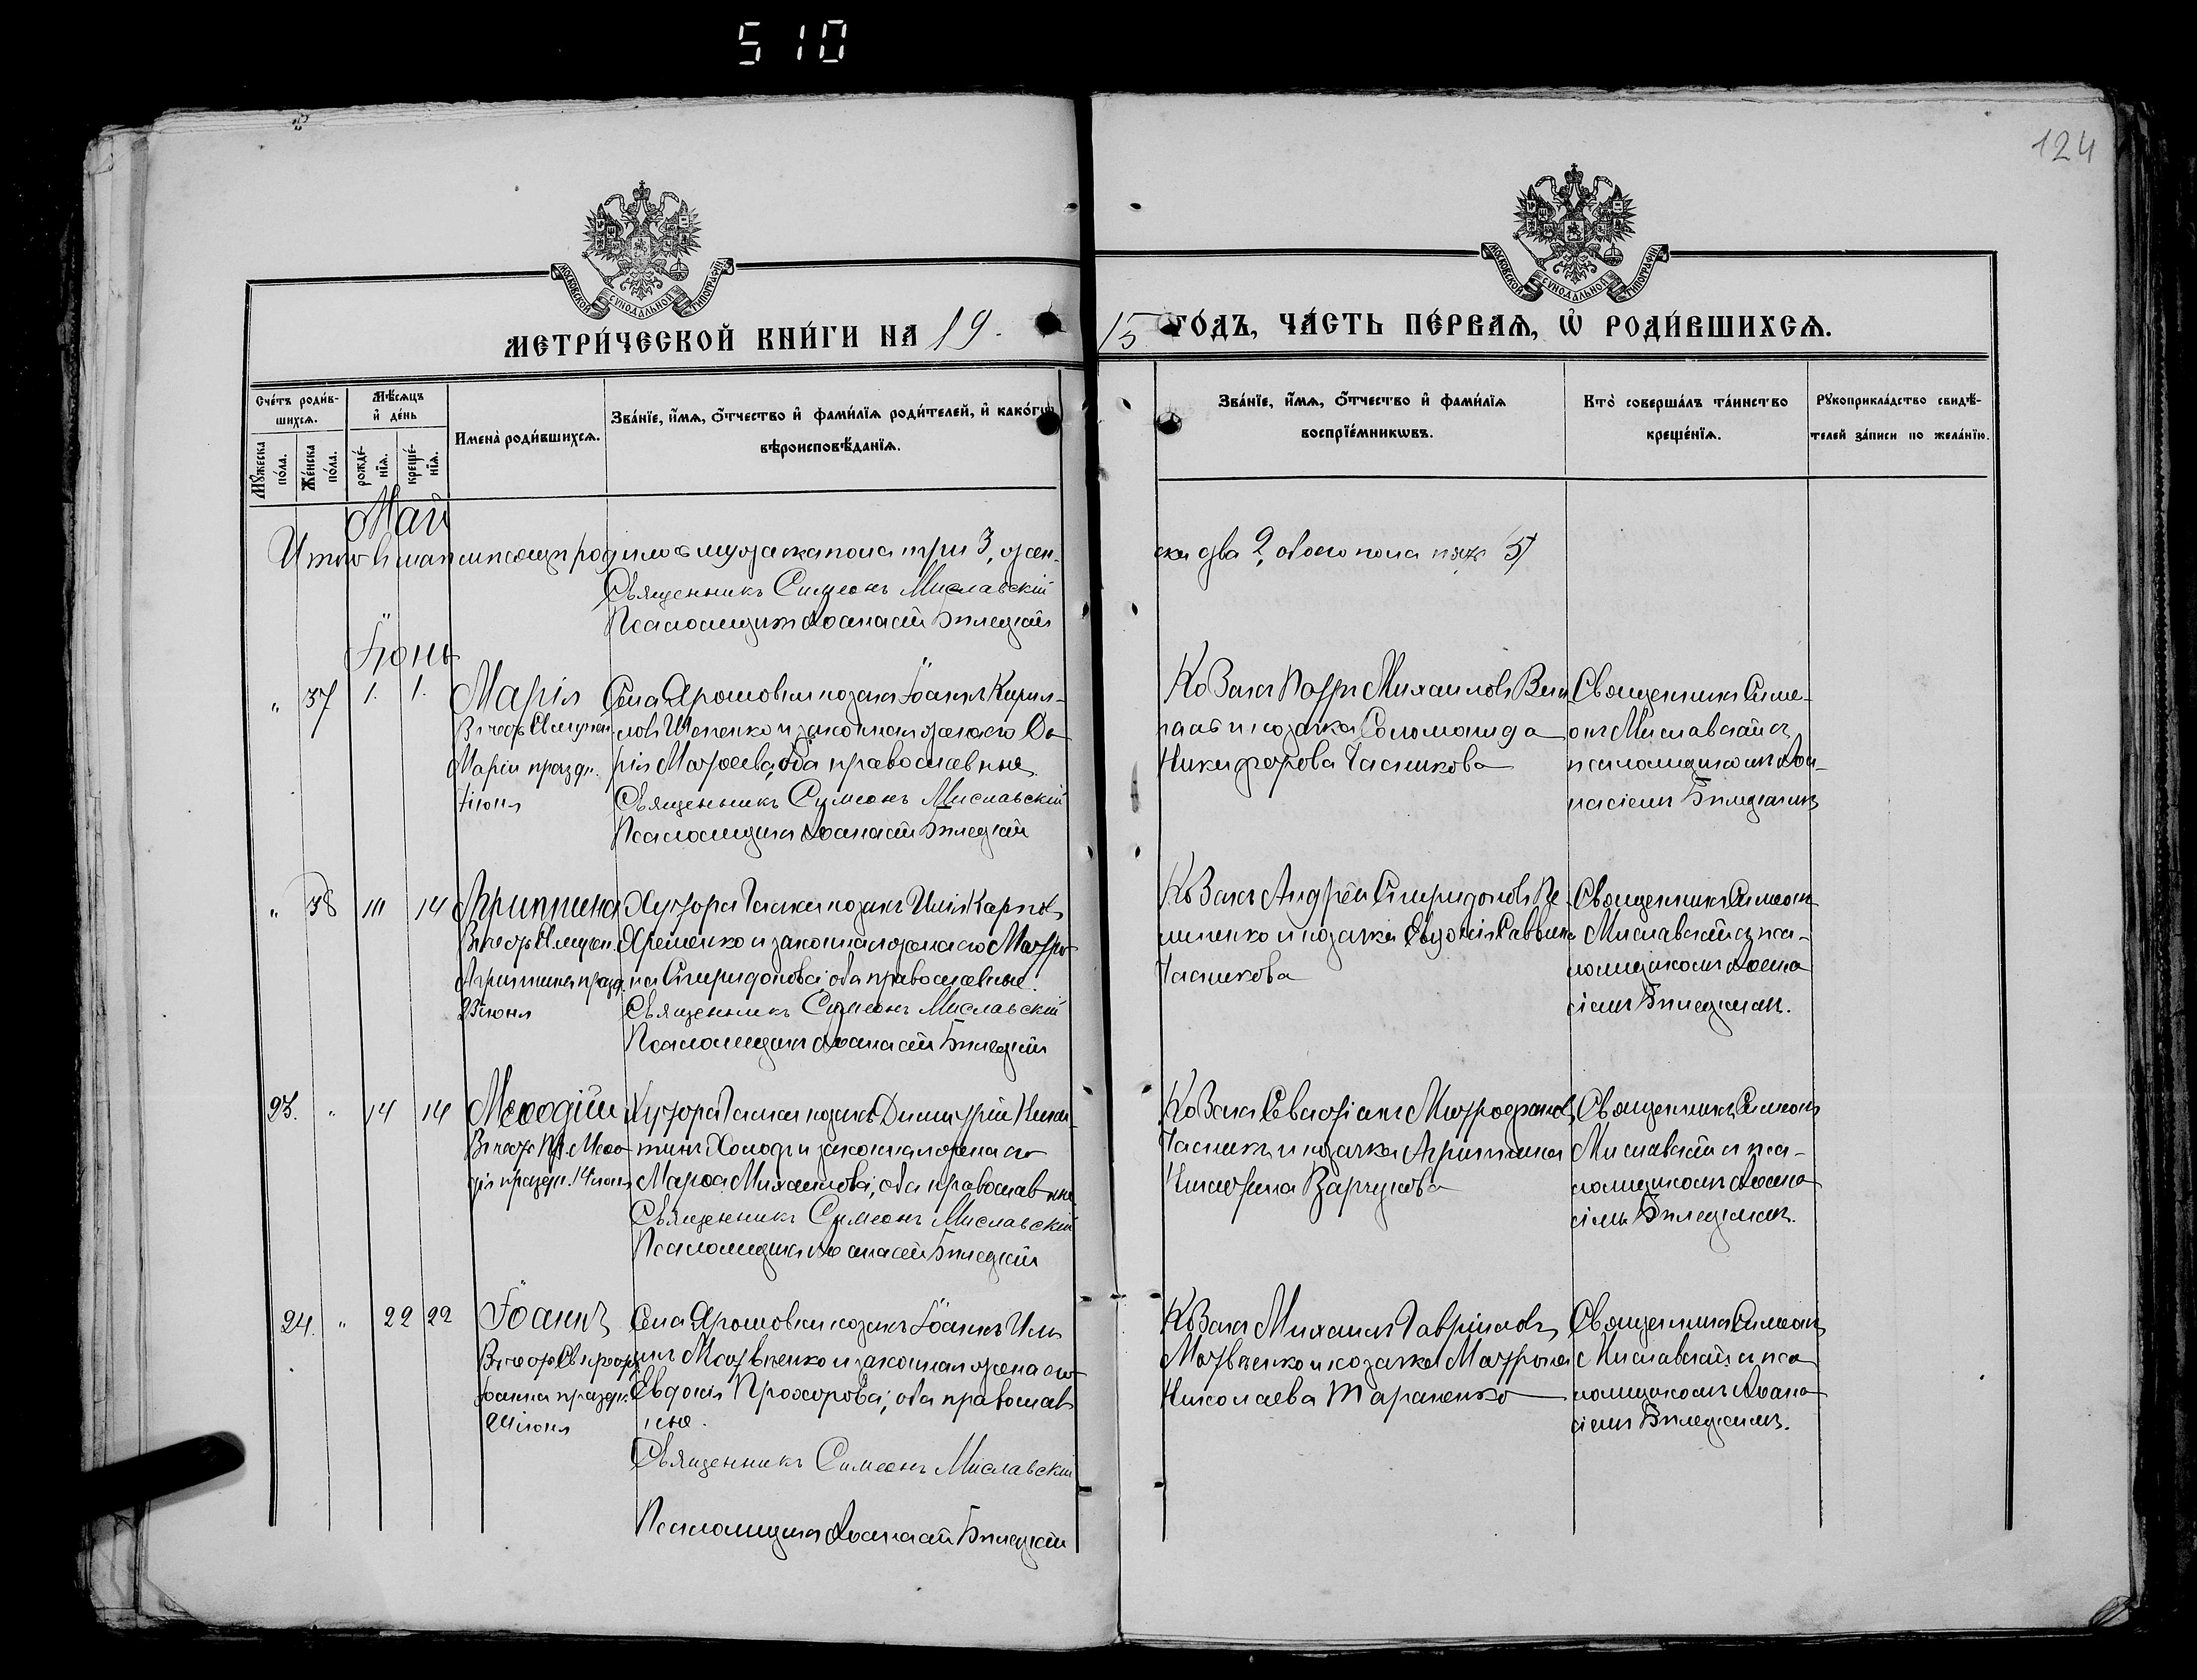 510
124
МОСКОВСКОЙ СѴНОДАЛЬНОЙ ТИПОГРАФІИ
МОСКОВСКОЙ СѴНОДАЛЬНОЙ ТИПОГРАФІИ
МЕТРИ́ЧЕСКОЙ КНИ́ГИ НА 19
15 ГО́ДЪ, ЧА́СТЬ ПЕ́РВАѦ, Ѡ҆ РОДИ́ВШИХСѦ.
Сче́тъ роди́в-
шихсѧ.
Мꙋ́жеска по́ла.
Же́нска по́ла.
Мѣ́сѧцъ
и҆ де́нь
рожде́-
нїѧ.
креще́-
нїѧ.
Имена̀ роди́вшихсѧ.
Зва́нїе, и҆́мѧ, ѻ҆́тчество и҆ фами́лїѧ роди́телей, и҆ како́гѡ
вѣроисповѣ́данїѧ.
Зва́нїе, и҆́мѧ, ѻ҆́тчество и҆ фами́лїѧ
воспрїе́мникѡвъ.
Кто̀ соверша́лъ та́инство
креще́нїѧ.
Рꙋкоприкла́дство свидѣ́-
телей за́писи по жела́нїю.
Май
Итого въ маѣ мѣсяцѣ родилось мужеска пола три 3, жен-
ска два 2, обоего пола пять 5
Священникъ Симеонъ Миславскій
Псаломщикъ Аѳанасій Билецкій
Іюнь
" 37 1. 1. Марія
Въ честь Св. мучен.
Маріи праздн.
7 іюня
Села Ярошовки козакъ Іоаннъ Кирил-
ловъ Шепенко и законная жена его Да-
рія Матѳеева, оба православные.
Священникъ Симеонъ Миславскій
Псаломщикъ Аѳанасій Билецкій
Козакъ Петръ Михаиловъ
и козачка Соломонида
Никифорова Часникова
Священникъ Симе-
онъ Миславскій съ
псаломщикомъ Аѳа-
насіемъ Билецкимъ
" 38 14 Агриппина
Въ честь Св. мучен.
Агриппины празд.
23 іюня
Хутора Галки козакъ Илія Карповъ
Яременко и законная жена его Матро-
на Спиридонова, оба православные.
Священникъ Симеонъ Миславскій
Псаломщикъ Аѳанасій Билецкій
Козакъ Андрей Спиридоновъ Пи-
липенко и козачка Евдокія Саввина
Часникова
Священникъ Симеонъ
Миславскій съ пса-
ломщикомъ Аѳана-
сіемъ Билецкимъ.
23. " 14 14 Меѳодій
Въ честь Пр. Меѳо-
дія праздн. 14 іюня
Хутора Галки козакъ Димитрій Ники-
тинъ Холодъ и законная жена его
Марѳа Михаилова, оба православные
Священникъ Симеонъ Миславскій
Псаломщикъ Аѳанасій Билецкій
Козакъ Севастіанъ Митрофановъ
Часникъ и козачка Агриппина
Никитина
Священникъ Симеонъ
Миславскій съ пса-
ломщикомъ Аѳана-
сіемъ Билецкимъ.
24. " 22 22 Іоаннъ
Въ честь Св. прор.
Іоанна праздн.
24 іюня
Села Ярошовки козакъ Іоаннъ Иль-
инъ Матвѣенко и законная жена его
Евдокія Прохорова, оба православ-
ные.
Священникъ Симеонъ Миславскій
Псаломщикъ Аѳанасій Билецкій
Козакъ Михаилъ Гавріиловъ
Матвѣенко и козачка Матрона
Николаева Тараненко
Священникъ Симеонъ
Миславскій съ пса-
ломщикомъ Аѳана-
сіемъ Билецкимъ.